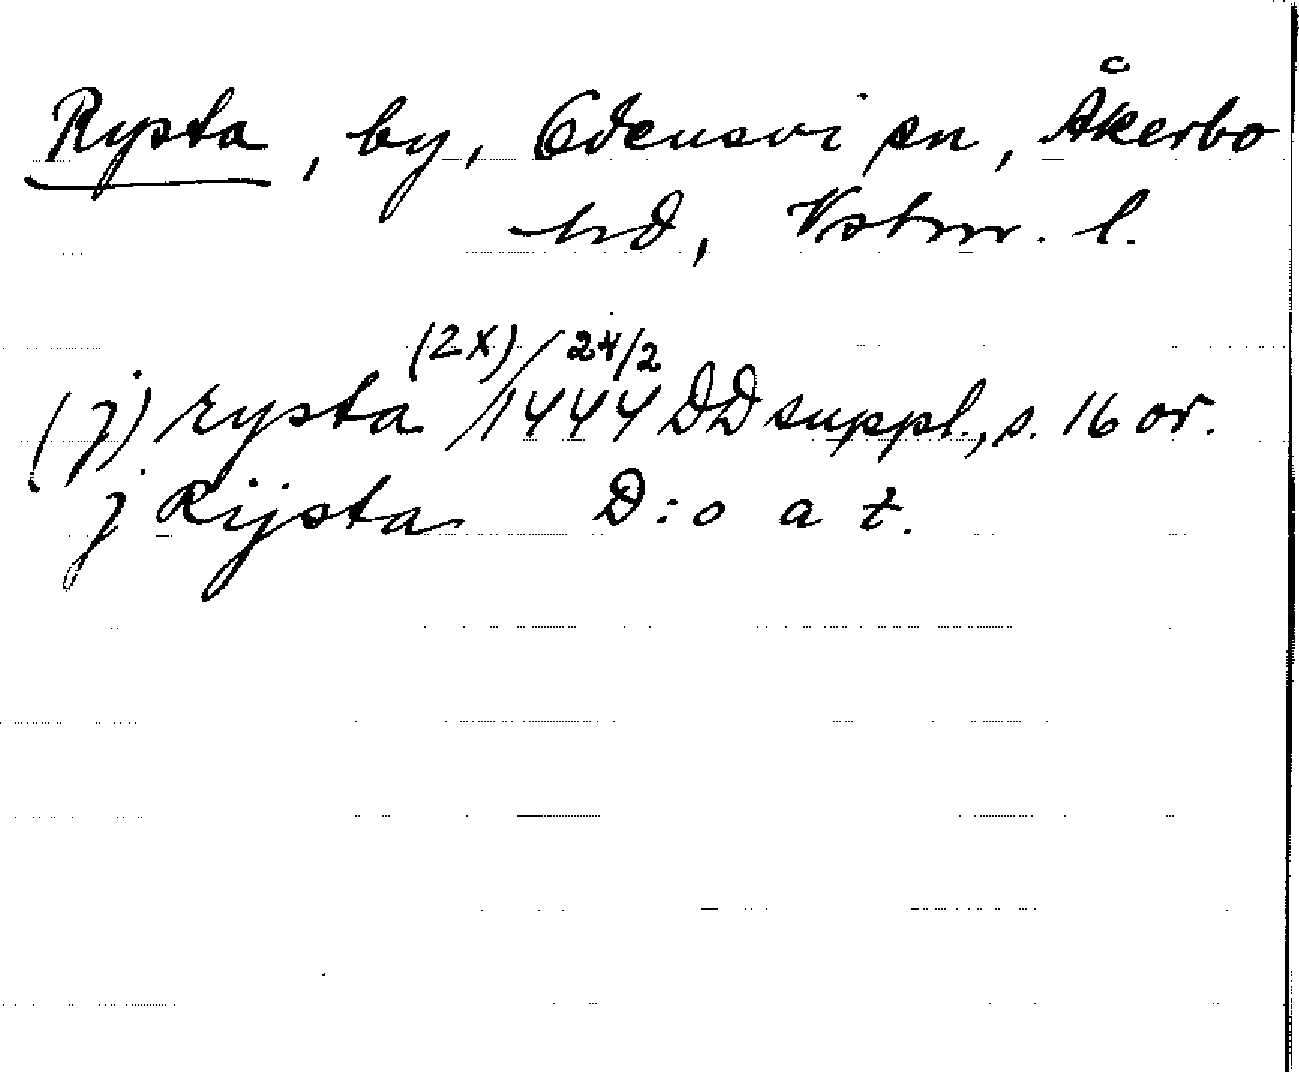 Rysta, by, Odensvi sn, Åkerbo
hd, Vstm. l.
(j) rysta (2x) / 24/2 1444 DD suppl., s. 16 or.
j Rijsta D:o a t.